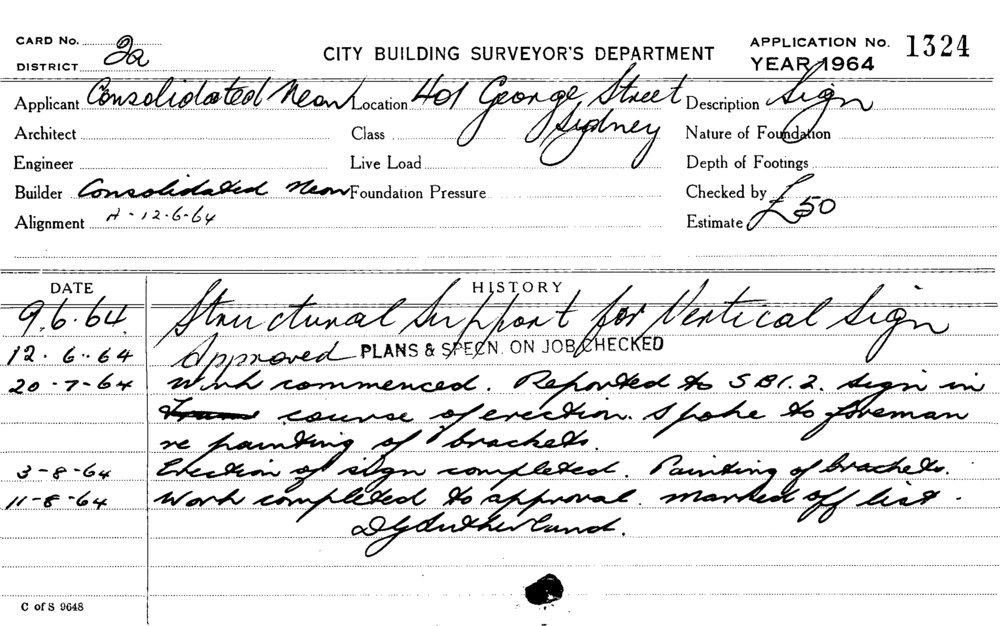 CARD No. 2a CITY BUILDING SURVEYOR'S DEPARTMENT APPLICATION No. 1324
DISTRICT YEAR 1964
Applicant Consolidated Neon Location 401 George Street Description Sign
Architect Class Sydney Nature of Foundation
Engineer Live Load Depth of Footings
Builder Consolidated Neon Foundation Pressure Checked by
Alignment A - 12-6-64 Estimate £50
DATE HISTORY
9.6.64. Structural Support for Vertical Sign
12. 6. 64 Approved PLANS & SPECN. ON JOB CHECKED
20-7-64 Work commenced. Reported to S.B.I. 2. Sign in
course of erection. Spoke to foreman
re painting of brackets.
3-8-64 Erection of sign completed. Painting of brackets.
11-8-64 Work completed to approval. Marked off list.
DGSutherland.
C of S 9648